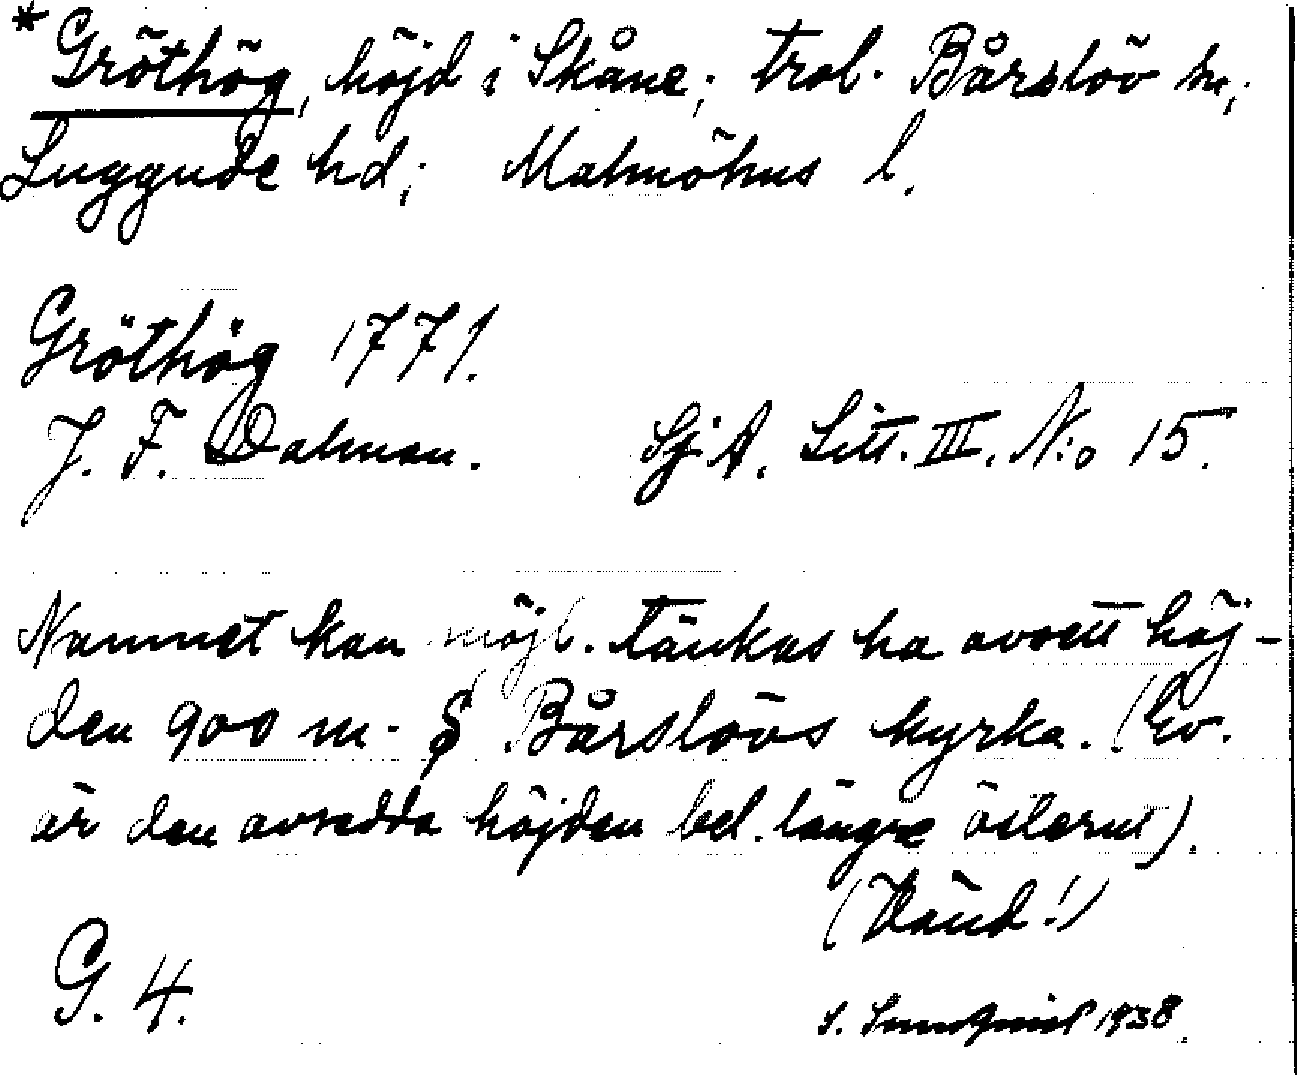 * Gröthög, höjd i Skåne; trol. Bårslöv sn;
Luggude hd; Malmöhus l.
Gröthög 1771.
J. F. Dalman. Sj. A. Litt. III. N:o 15.
Namnet kan möjl. tänkas ha avsett höj-
den 900 m. S Bårslövs kyrka. (Ev.
är den avsedda höjden bel. längre österut).
(Vänd!)
G. 4.
S. Sundqvist 1938.